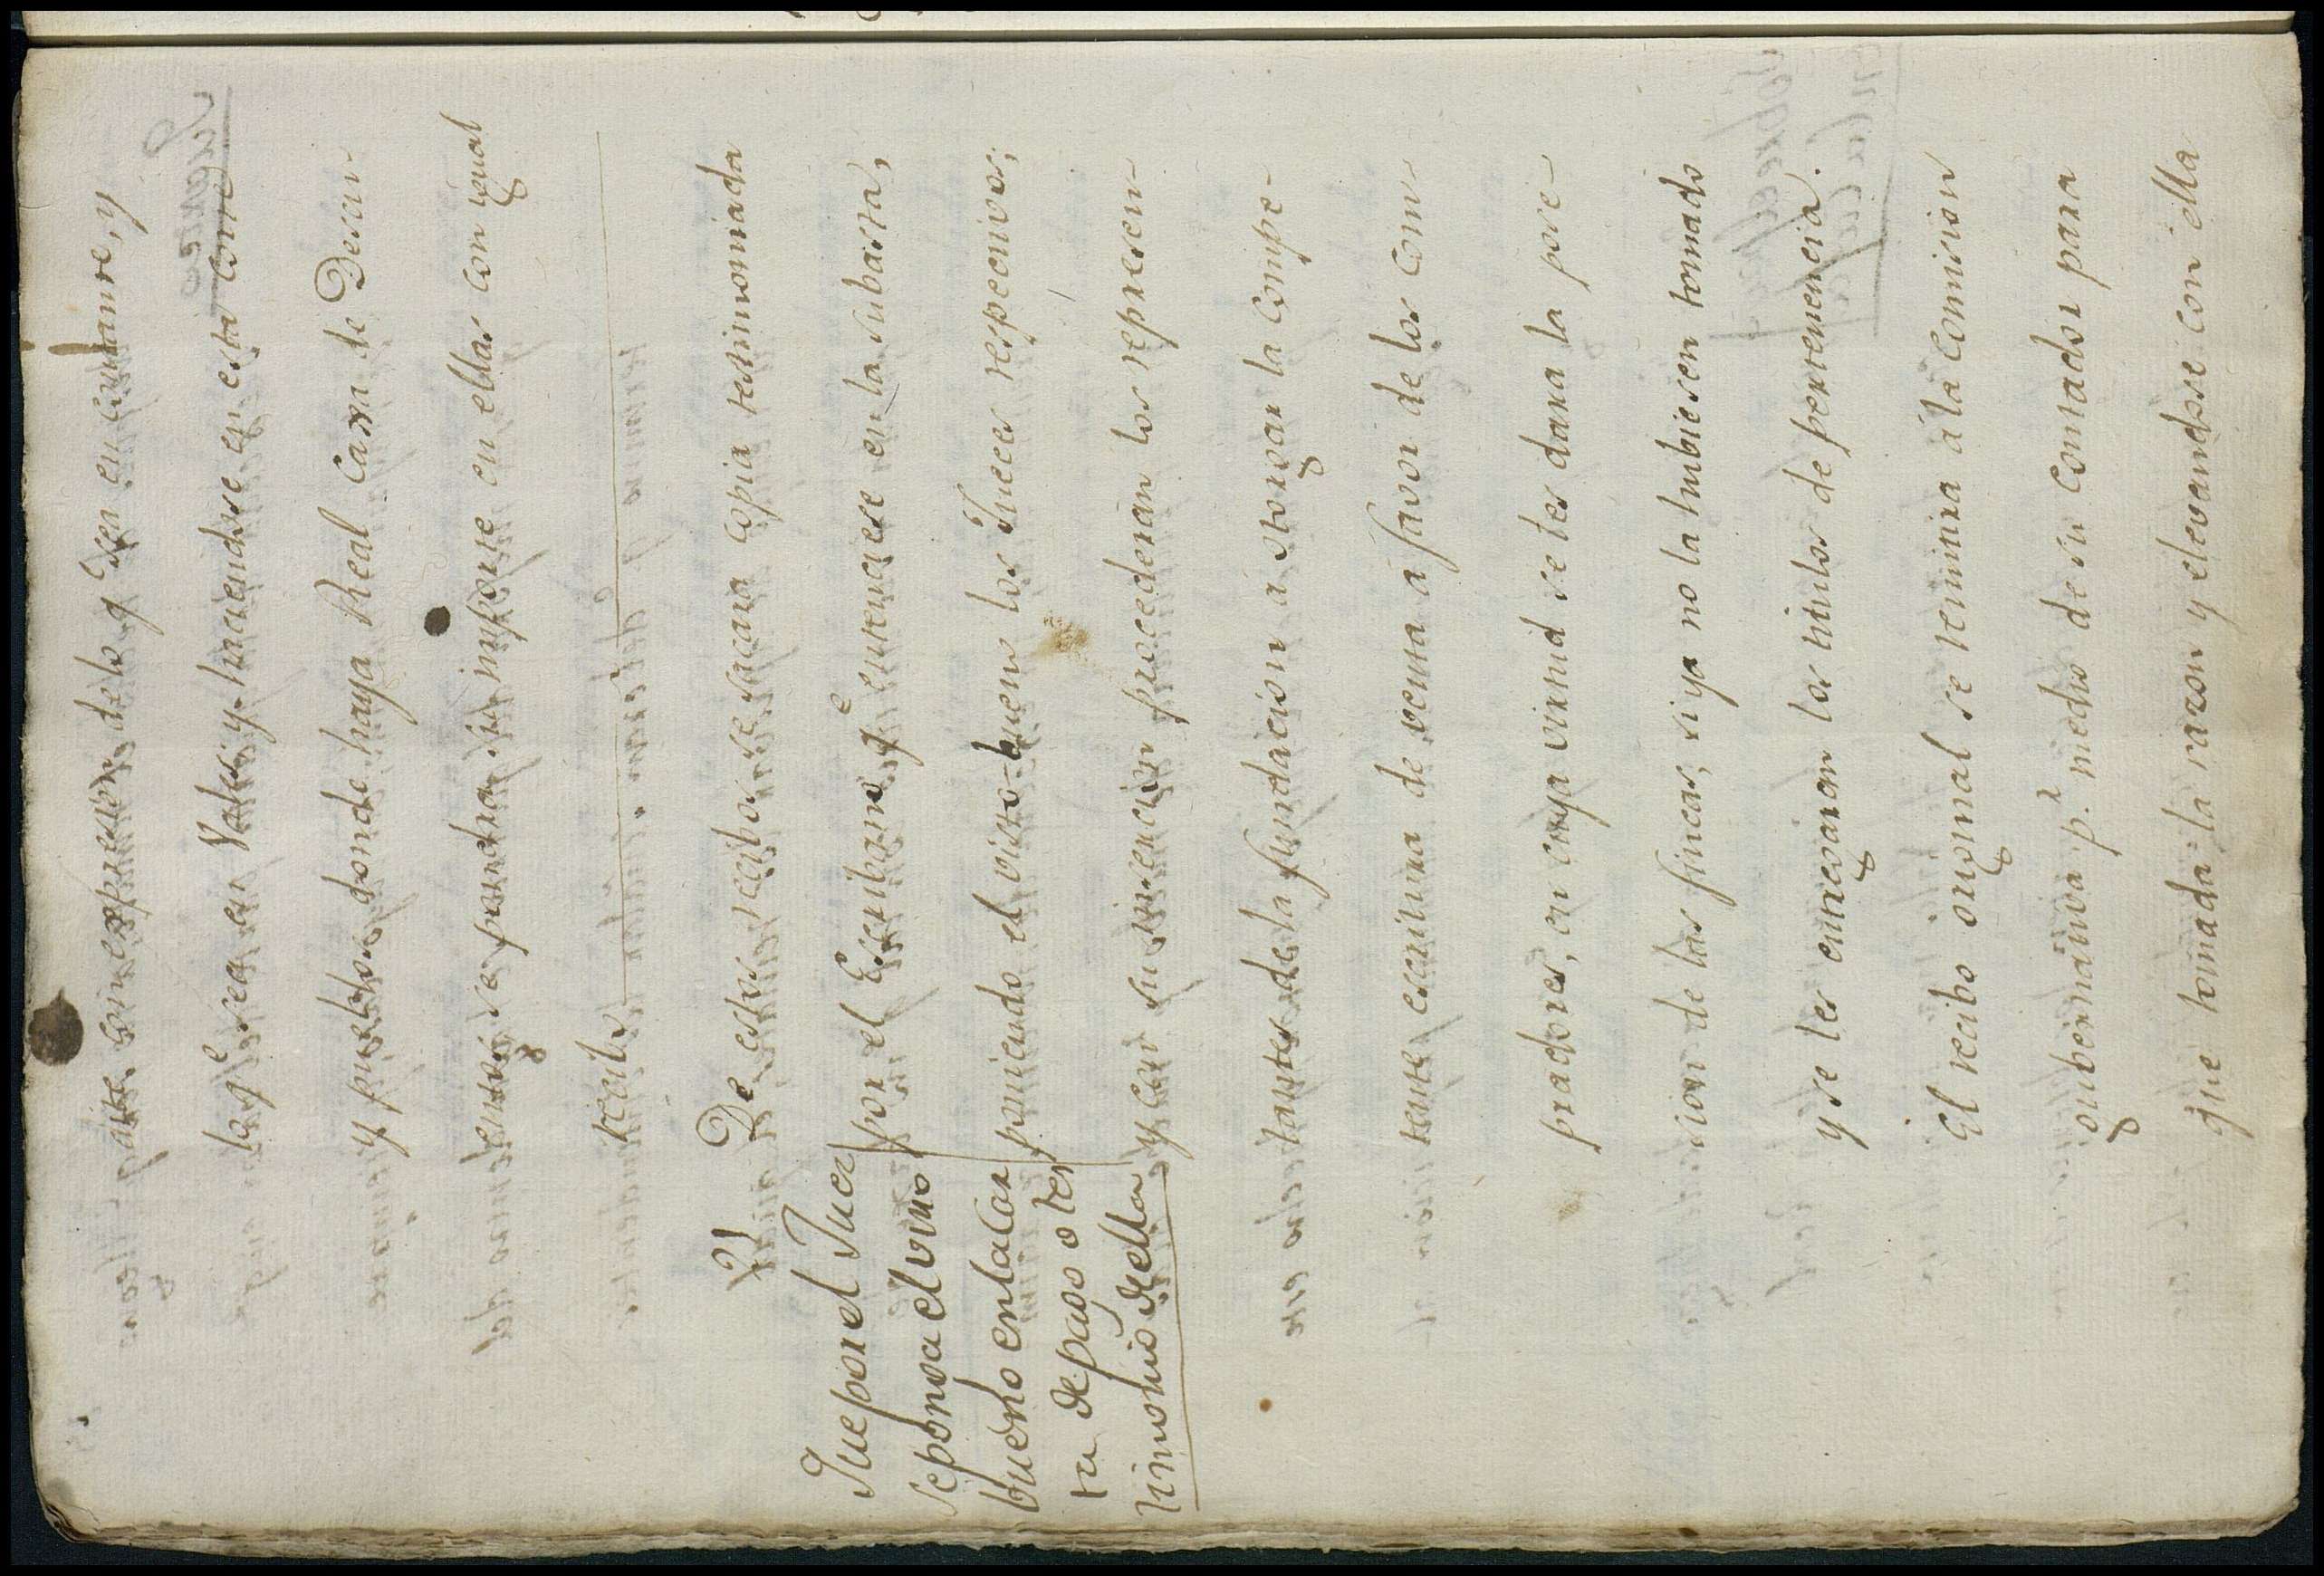 gaste con expresion de lo q.e sea en contante, y
lo q.e sea en Vales, y haciendose en esta Corte
y pueblos donde haya Real Caxa de Descuen-
entos, se pondra su importe en ellas con igual
recibo
21 De estos recibos se sacara copia testimoniada
por el Escribano q.e entendiese en la subasta,
poniendo el visto-bueno los Jueces respectivos;
y con su insercion procederan los represen-
tantes de la fundacion a otorgar la compe-
tente escritura de venta a favor de los com-
pradores, en cuya virtud se les dara la pose-
sion de las fincas, si ya no la hubiesen tomado
y se les entregaran los titulos de pertenencia.
El recibo original se remitira a la comision
gubernativa p.r medio de su Contador para
que tomada la razon y elevandose con ella
Que por el Juez
se ponga el visto
bueno en la Car
ta de pago o tes
timonio de ella